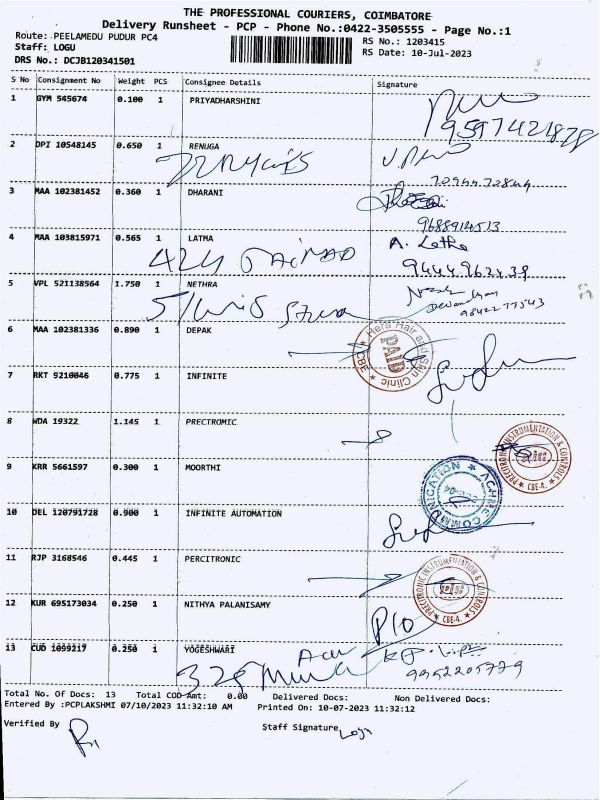 THE PROFESSIONAL COURIERS, COIMBATORE
Delivery Runsheet - PCP - Phone No.:0422-3505555 - Page No.:1
Route: PEELAMEDU PUDUR PC4
RS No.: 1203415
Staff: LOGU
RS Date: 10-Jul-2023
DRS No.: DCJB120341501
S No Consignment No Weight PCS Consignee Details Signature
1 GYM 545674 0.100 1 PRIYADHARSHINI
9597421878
2 DPI 10548145 0.650 1 RENUGA
3 MAA 102381452 0.360 1 DHARANI
9688914513
4 MAA 103815971 0.565 1 LATHA A. Latha
9444962439
5 VPL 521138564 1.750 1 NETHRA
9842277543
6 MAA 102381336 0.890 1 DEPAK
Hera Hair and Skin Clinic * CBE * PAID
7 RKT 9210046 0.775 1 INFINITE
8 WDA 19322 1.145 1 PRECTROMIC
PRECITRONIC INSTRUMENTATION & CONTROLS * CBE-4. *
9 KRR 5661597 0.300 1 MOORTHI
10 DEL 120791728 0.900 1 INFINITE AUTOMATION
11 RJP 3168546 0.445 1 PERCITRONIC
PRECITRONIC INSTRUMENTATION & CONTROLS * CBE-4. *
12 KUR 695173034 0.250 1 NITHYA PALANISAMY
P10
13 CUD 1099217 0.250 1 YOGESHWARI
9952205779
Total No. Of Docs: 13 Total COD Amt: 0.00 Delivered Docs: Non Delivered Docs:
Entered By :PCPLAKSHMI 07/10/2023 11:32:10 AM Printed On: 10-07-2023 11:32:12
Verified By Staff Signature Logu